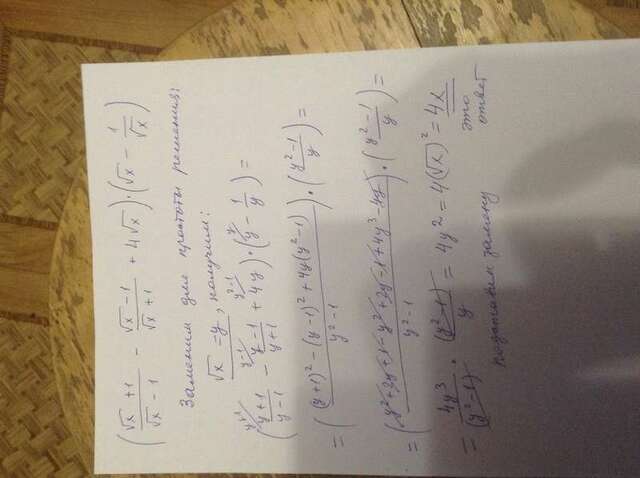 (√x +1 / √x - 1 - √x - 1 / √x + 1 + 4√x)·(√x - 1/√x)
Заменим для простоты решения:
√x = y, получим:
y+1 y-1 y²-1 y
(y+1 / y-1 - y-1 / y+1 + 4y)·(y - 1/y) =
= ((y+1)² - (y-1)² + 4y(y²-1) / y²-1)·(y²-1 / y) =
= (y²+2y+1-y²+2y-1+4y³-4y / y²-1)·(y²-1 / y) =
= 4y³ / (y²-1) · (y²-1) / y = 4y² = 4(√x)² = 4x
подставим замену
это
ответ